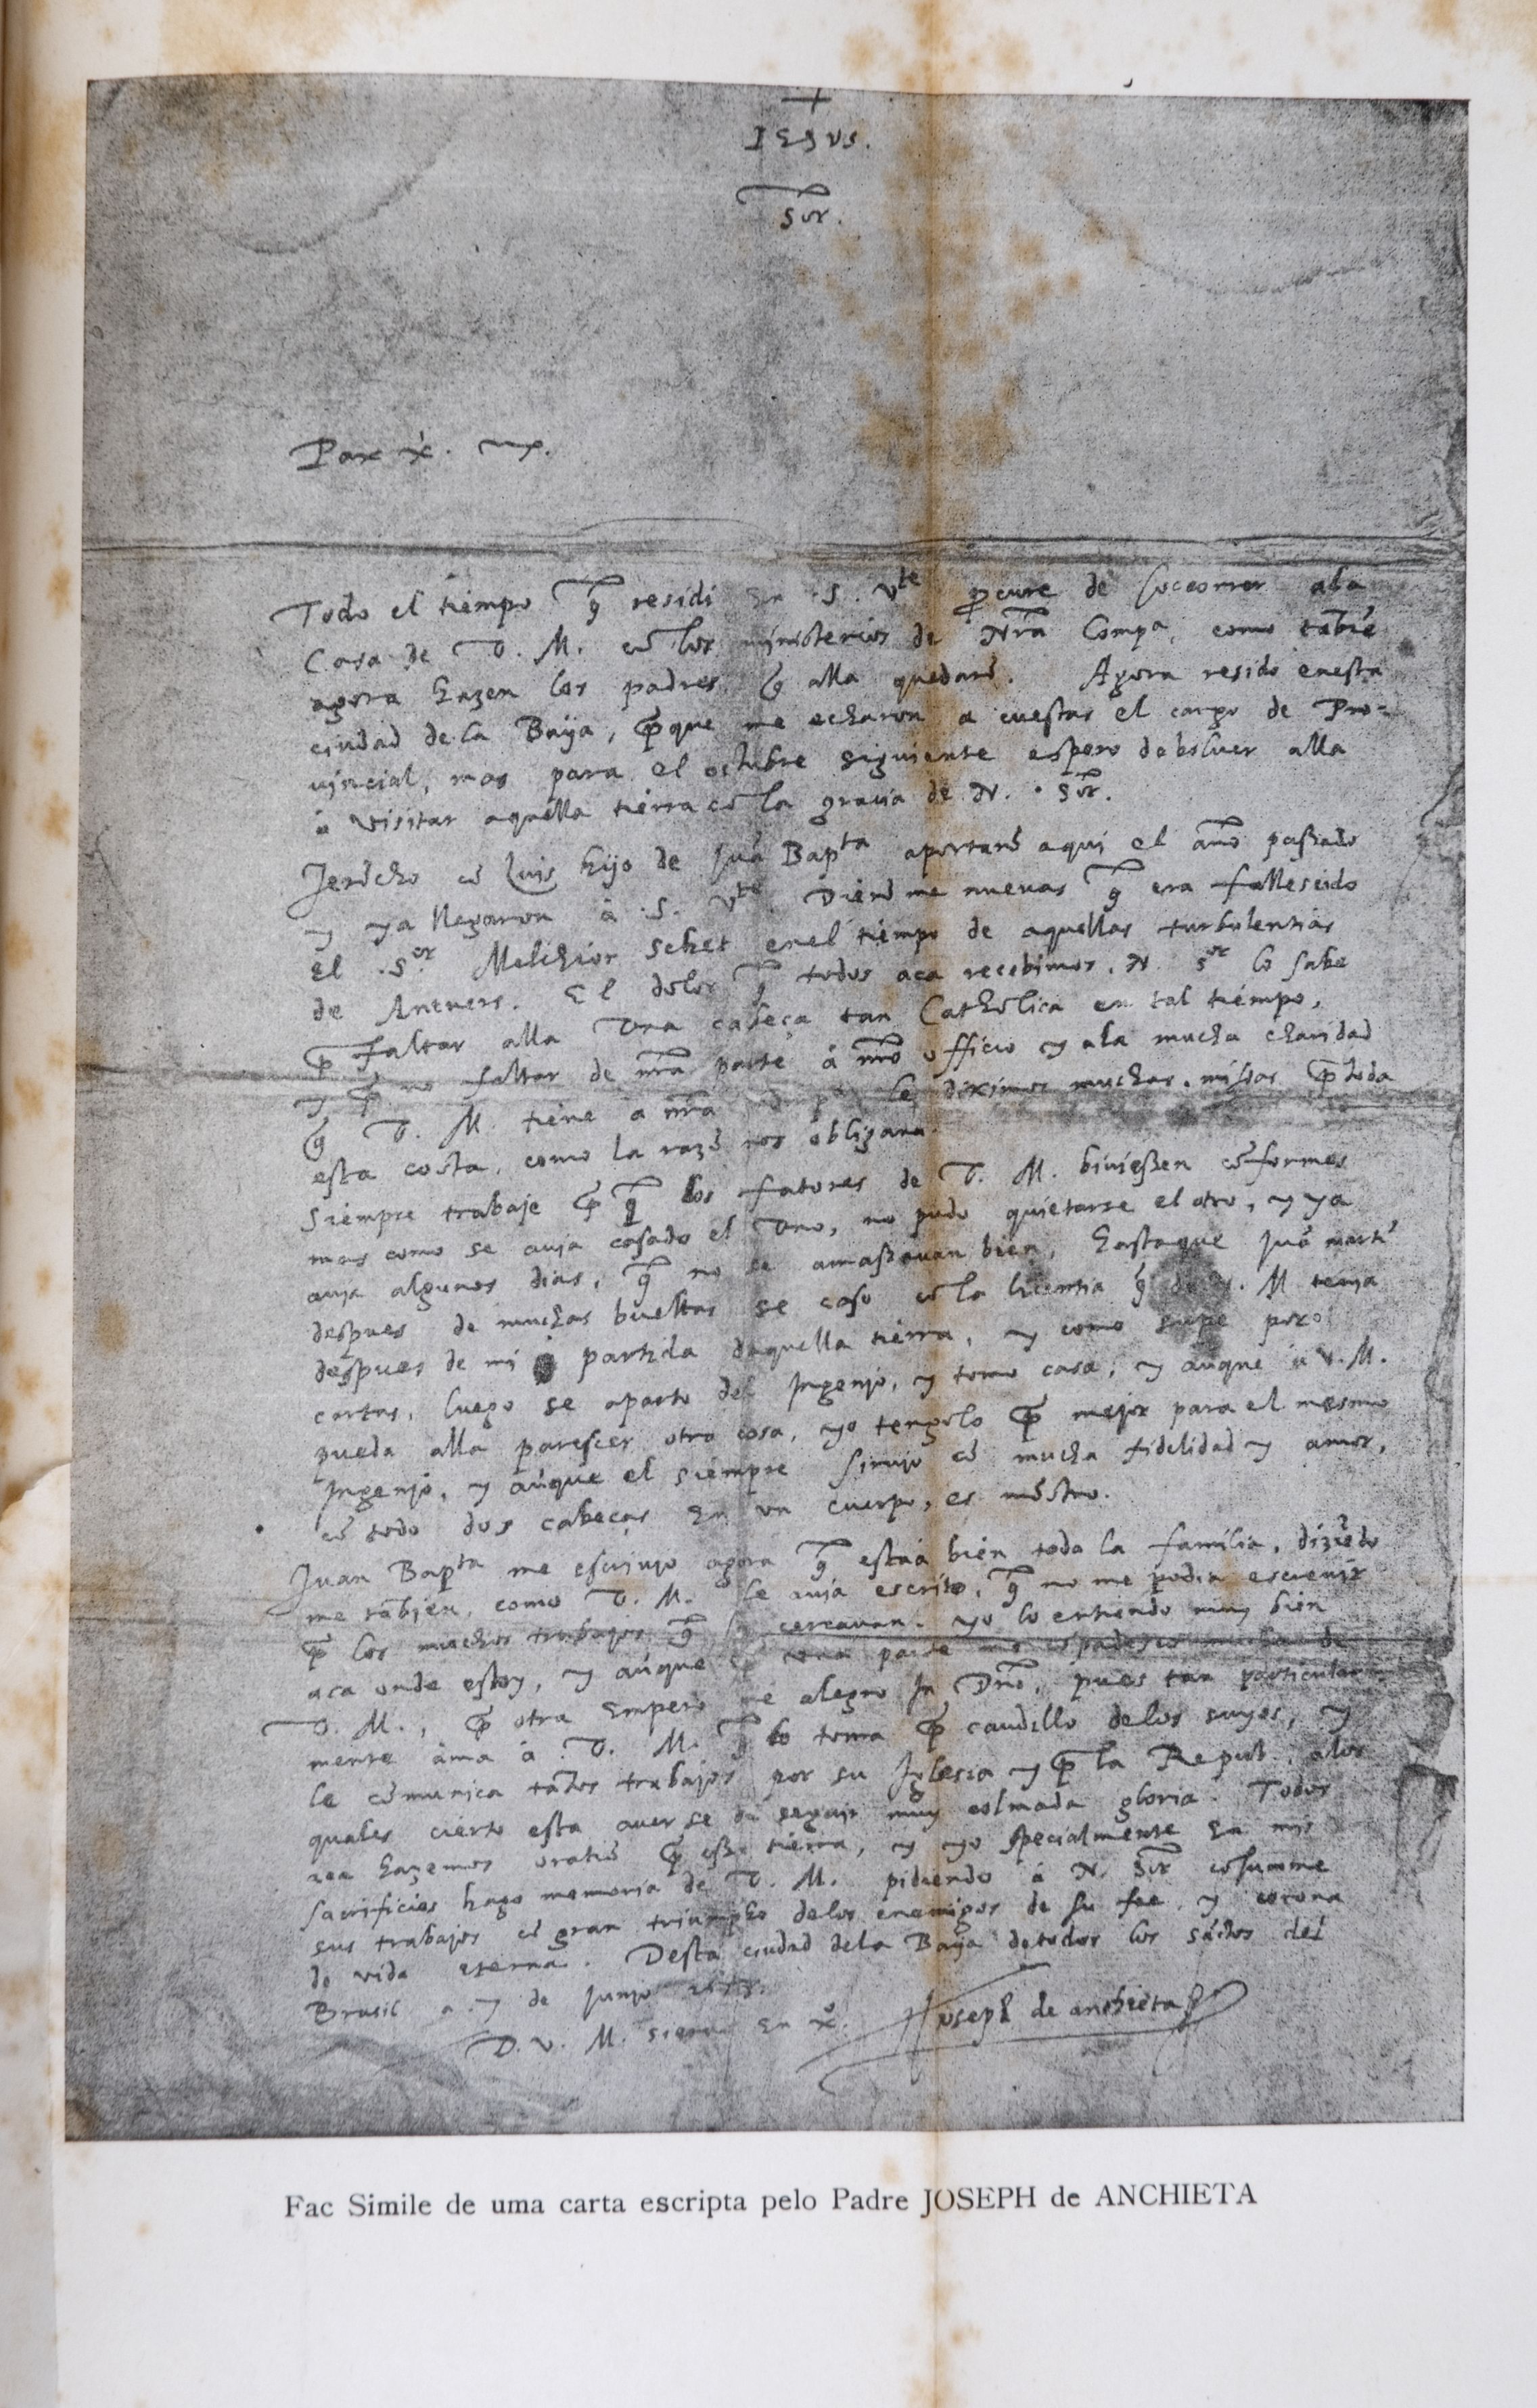 +
IESVS.
Sor.
Pax x̃.
Todo el tiempo q̃ residi en .S. Vte p̱cure de soccorrer a la
Casa de V. M. cõ los ministerios de Nr̃a Compa, como tãbiẽ
agora hazen los padres q̃ alla quedarõ. Agora resido enesta
ciudad de la Baija, p̱que me echaron a cuestas el cargo de Pro-
uincial, mas para el octubre siguiente espero de boluer alla
à visitar aquella tierra cõ la gracia de N. Sõr.
Jerõcho cõ Luis hijo de Juã Bapta aportarõ aqui el año passado
y ya llegaron à .S. Vte. Dierõ me nueuas q̃ era fallescido
el .Sor. Melchior Schet enel tiempo de aquellas turbulentias
de Anvers. El dolor q̃ todos aca recebimos, N. Sor lo sabe
p̱ faltar alla vna cabeça tan Catholica en tal tiempo,
y p̱ no faltar de nr̃a parte á nr̃o officio y a la mucha charidad
q̃ V. M. tiene a nr̃a le diximos muchas missas p̱ toda
esta costa, como la razõ nos obligaua.
Siempre trabaje p̱ q̃ los fatores de V. M. biuiessen cõformes
mas como se auja casado el vno, no pudo quietarse el otro, y ya
auja algunos dias, q̃ no se amassauan bien, hasta que Juã martĩ
despues de muchas bueltas se caso cõ la licentia q̃ de V. M tenja
despues de mi partida daquella tierra, y como supe por
cartas, luego se aparto del Ingenjo, y tomo casa, y aũque à V. M.
pueda alla parescer otra cosa, yo tengolo p̱ mejor para el mesmo
Ingenjo, y aũque el siempre sirujo cõ mucha fidelidad y amor,
cõ todo dos cabeças en vn cuerpo, es mõstro.
Juan Bapta me escriujo agora q̃ estaá bien toda la familia, diziẽdo
me tãbien, como V. M. le auja escrito, q̃ no me podia escreujr
p̱ los muchos trabajos q̃ lo cercauan. yo lo entiendo muy bien
aca onde estoy, y aũque p̱ vna parte me cõpadesco mucho de
V. M., p̱ otra empero me alegro In Dño, pues tan particular-
mente àma à V. M. q̃ lo toma p̱ caudillo delos suyos, y
le cõmunica tãtos trabajos por su Iglesia y p̱ la Repub. a los
quales cierto esta auerse de seguir muy colmada gloria. Todos
aca hazemos oratiõ p̱ essa tierra, y yo specialmente en mis
sacrificios hago memoria de V. M. pidiendo à N. Sõr cõsumme
sus trabajos cõ gran triumpho delos enemigos de su fee, y corona
de vida eterna. Desta ciudad dela Baija de todos los sãtos del
Brasil a 7 de Junjo 1578.
D. V. M. sieruo en x̃o.
Joseph de anchieta
Fac Simile de uma carta escripta pelo Padre JOSEPH de ANCHIETA